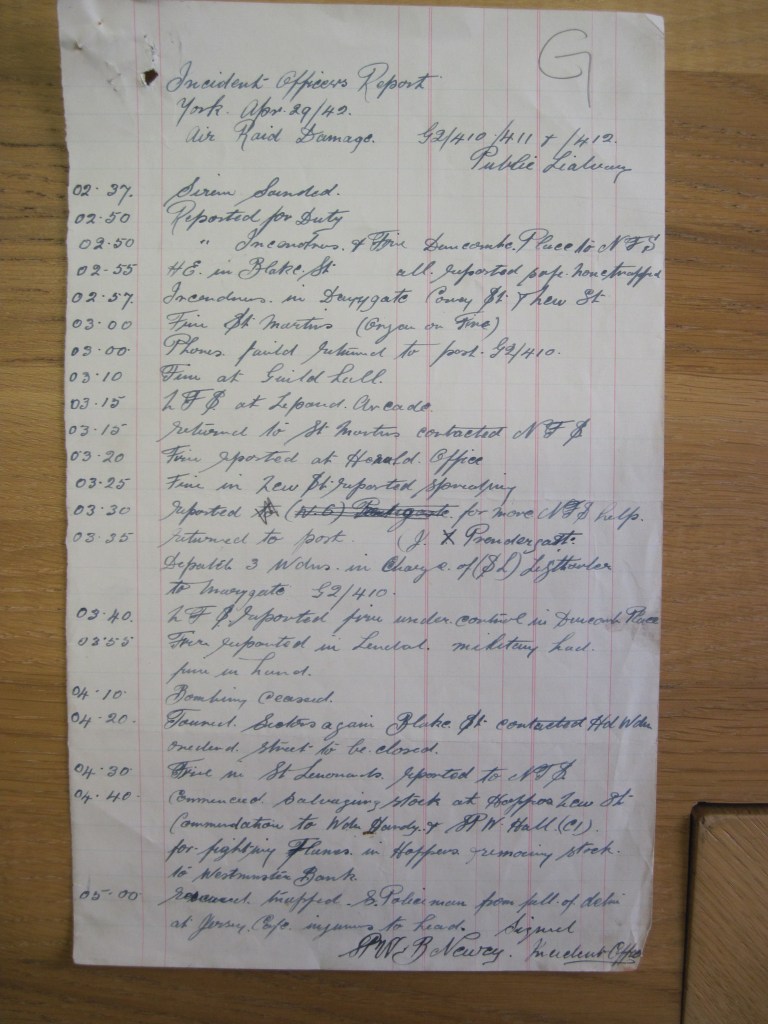 G
Incident Officers Report
York. Apr. 29/42.
Air Raid Damage. G2/410./411 + /412.
Public Liabrary
02.37. Siren Sounded.
02.50 Reported for Duty
02.50 " Incendries. & Fire Duncombe. Place to N F S
02-55 H.E. in Blake. St all. reported safe none trapped
02.57. Incendries. in Davygate Coney St. & New St
03.00 Fire St Martins (Organ on Fire)
03.00 Phones. faild returned to post. G2/410.
03.10 Fire at Guild hall.
03.15 N F S at Lepard. Arcade.
03.15 returned to St Martins contacted N F S
03.20 Fire reported at Herald. Office
03.25 Fire in New St reported spreading
03.30 reported for more N F S help.
03.35 returned to post. (J. Prendergast.
Depatch 3 Wdns. in Charge of (S L) 
to Marygate G2/410.
03.40. N F S reported fire under. control in Duncomb Place
03.55 Fire reported in Lendal. military had.
fire in hand.
04.10 Bombing ceased.
04.20. Toured. Sectors again Blake. St. contacted Hd Wdn
orederd. street to be closed.
04.30 Fire in St Leonards. reported to N F S
04.40. Commenced. Salvaging stock at Hoppers New St
Commendation to Wdn Dandy. & R W. Hall. (C1).
for fighting Flames. in Hoppers & removing stock.
to Westminster Bank.
05.00 trapped. S. Policiman from fall. of debri
at Jersey. Cafe. injuries to head. Signed
B Newey. Incident Office